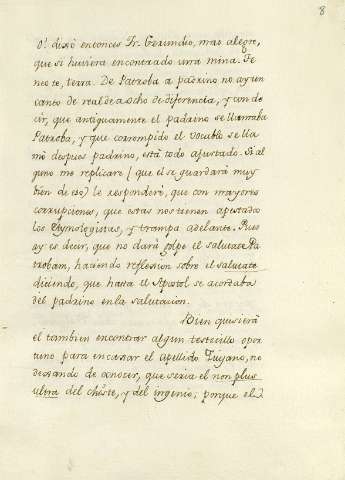 8
O! dixo entonces Fr. Gerundio, mas alegre,
que si huviera encontrado una mina. Te
neo te, terra. De Patroba a padrino no ay un
canto de real de a ocho de diferencia, y con de
cir, que antiguamente el padrino se llamaba
Patroba, y que corrompido el vocablo se lla
mò despues padrino, està todo ajustado. Si al
guno me replicare (que èl se guardarà muy
bien de eso) le responderè, que con mayores
corrupciones, que estas nos tienen apestados
los Etymologistas, y trampa adelante. Pues
ay es decir, que no darà golpe el salutate Pa
trobam, haciendo reflexion sobre el salutate
diciendo, que hasta el Apostol se acordaba
del padrino en la salutacion.
Bien quisiera
el tambien encontrar algun testecillo opor
tuno para encaxar el Apellido Quijano, no
dexando de conocer, que seria el non plus
ultra del chiste, y del ingenio; porque el